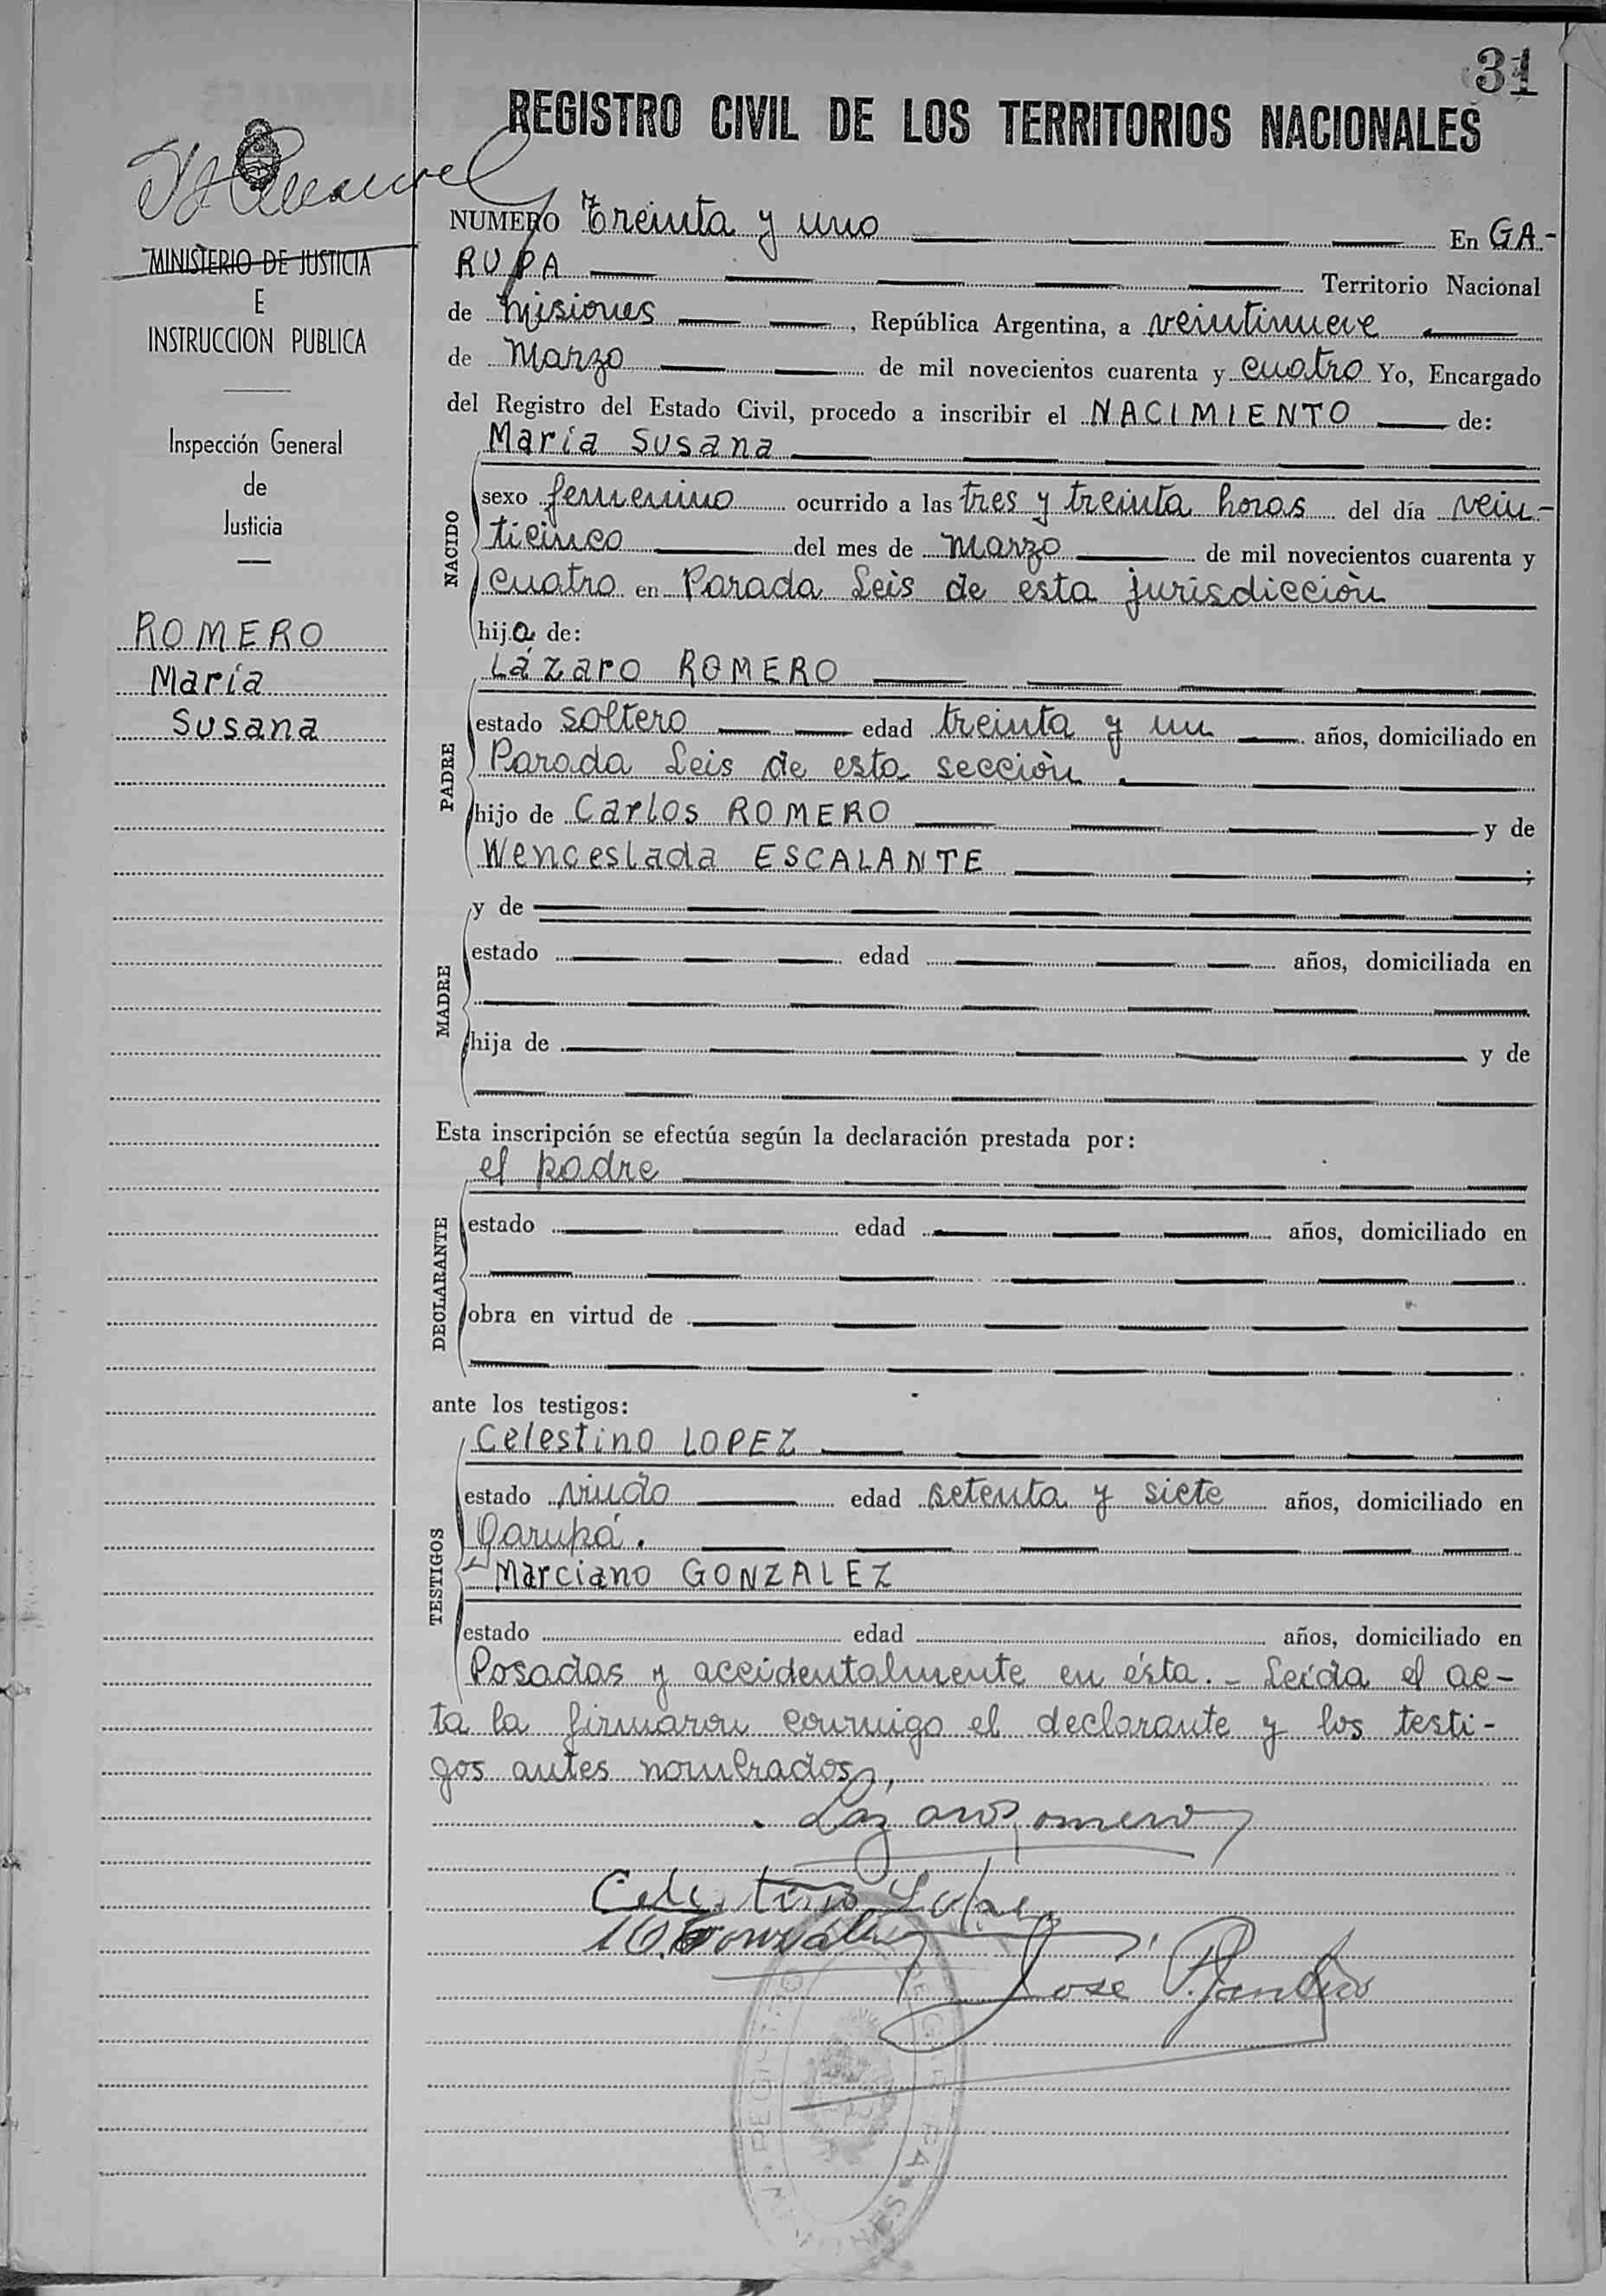 31
REGISTRO CIVIL DE LOS TERRITORIOS NACIONALES
MINISTERIO DE JUSTICIA
E
INSTRUCCION PUBLICA
Inspección General
de
Justicia
ROMERO
María
Susana
NUMERO Treinta y uno En GA-
RUPA Territorio Nacional
de Misiones, República Argentina, a veintinueve
de Marzo de mil novecientos cuarenta y cuatro Yo, Encargado
del Registro del Estado Civil, procedo a inscribir el NACIMIENTO de:
María Susana
NACIDO
sexo femenino ocurrido a las tres y treinta horas del día vein-
ticinco del mes de Marzo de mil novecientos cuarenta y
cuatro en Parada Leis de esta jurisdicciòn
hija de:
Lázaro ROMERO
PADRE
estado soltero edad treinta y un años, domiciliado en
Parada Leis de esta secciòn
hijo de Carlos ROMERO y de
Wenceslada ESCALANTE ;
MADRE
y de
estado edad años, domiciliada en
hija de y de
Esta inscripción se efectúa según la declaración prestada por:
el padre
DECLARANTE
estado edad años, domiciliado en
obra en virtud de
ante los testigos:
Celestino LOPEZ
TESTIGOS
estado viudo edad setenta y siete años, domiciliado en
Garupá.
Marciano GONZALEZ
estado edad años, domiciliado en
Posadas y accidentalmente en ésta.- Leída el ac-
ta la firmaron conmigo el declarante y los testi-
gos antes nombrados,
Lazaro Romero
Celestino Lopez
M. Gonzalez
José P.